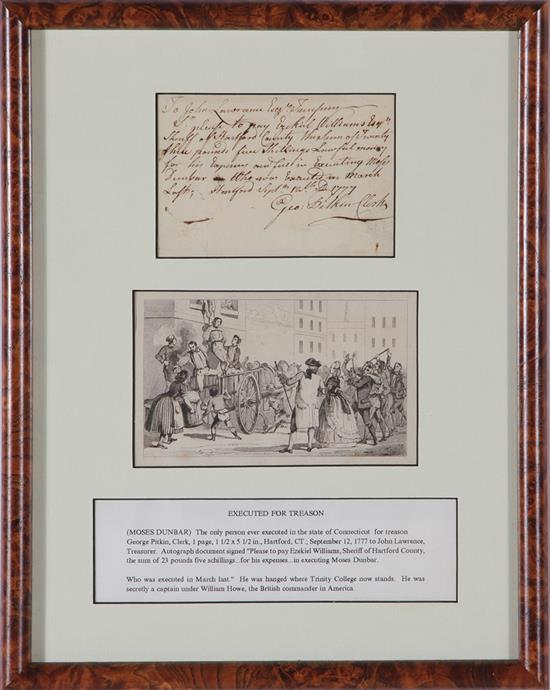 To John Lawrence Esqr Treasurer
Sr please to pay Ezekiel Williams Esqr
Sheriff of Hartford County the sum of Twenty
three pounds five Shillings Lawful money
for his Expences and Cost in Executing Moses
Dunbar — Who was Executed in March
Last; Hartford Septr 12th 1777
Geo: Pitkin Clerk
EXECUTED FOR TREASON
(MOSES DUNBAR) The only person ever executed in the state of Connecticut for treason
George Pitkin, Clerk, 1 page, 1 1/2 x 5 1/2 in., Hartford, CT.; September 12, 1777 to John Lawrence,
Treasurer. Autograph document signed "Please to pay Ezekiel Williams, Sheriff of Hartford County,
the sum of 23 pounds five schillings...for his expenses...in executing Moses Dunbar.
Who was executed in March last." He was hanged where Trinity College now stands. He was
secretly a captain under William Howe, the British commander in America.